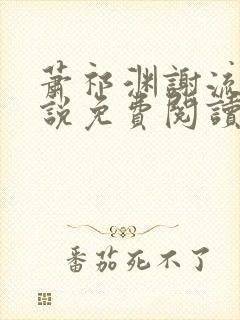 蕭祁渊謝流
說免費閱讀
番茄死不了